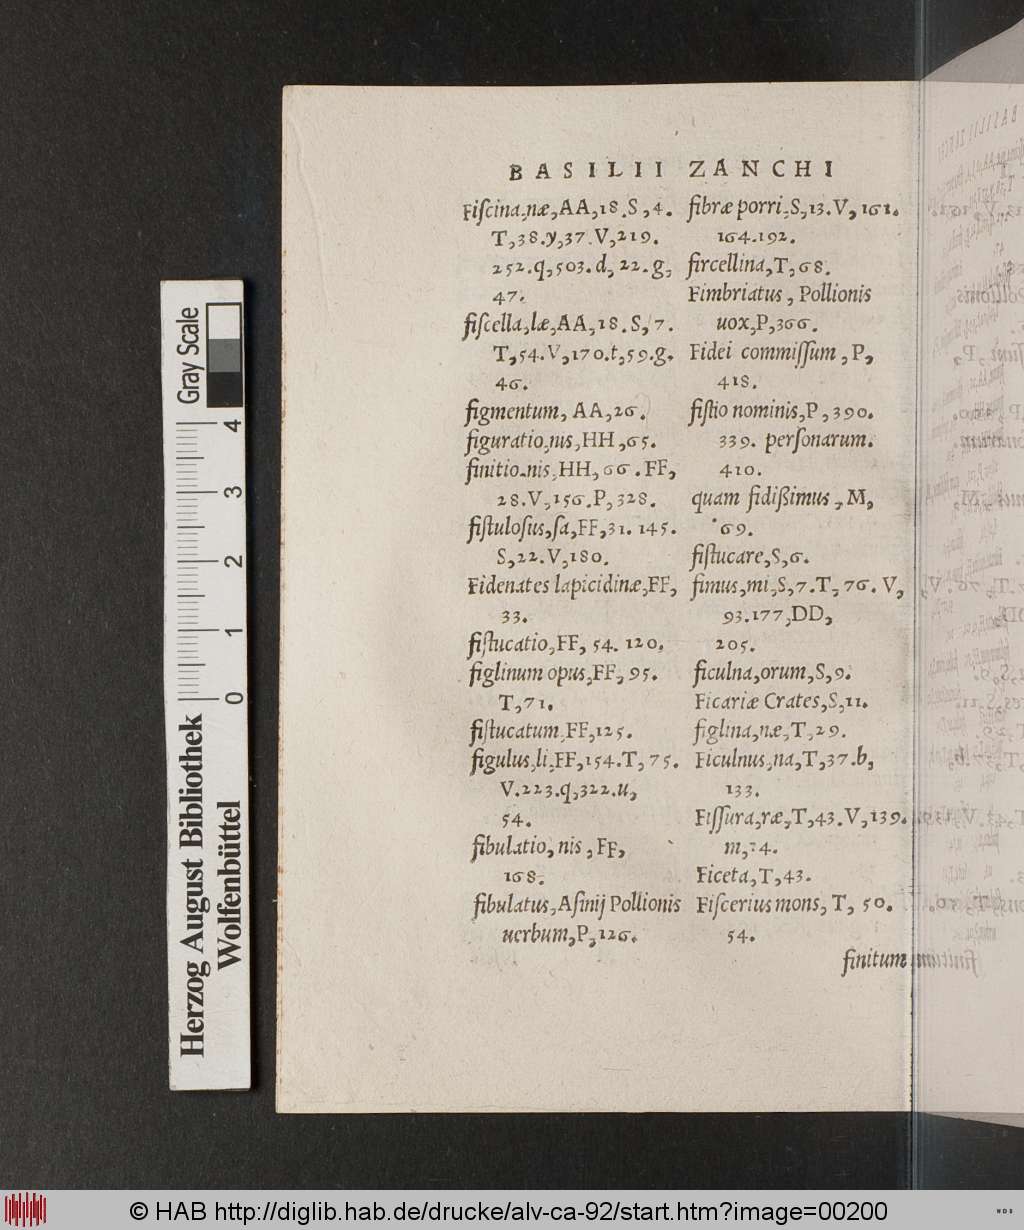 BASILII ZANCHI
Fiſcina,næ,AA,18.S,4.
T,38.y,37.V,219.
252.q,503.d,22.g,
47.
fiſcella,læ,AA,18.S,7.
T,54.V,170.t,59.g.
46.
figmentum, AA,26.
figuratio,nis,HH,65.
finitio.nis,HH,66.FF,
28.V,156.P,328.
fiſtuloſus,ſa,FF,31.145.
S,22.V,180.
Fidenates lapicidinæ,FF,
33.
fiſtucatio,FF, 54. 120.
figlinum opus,FF,95.
T,71.
fiſtucatum,FF,125.
figulus,li,FF,154.T,75.
V.223.q,322.u,
54.
fibulatio,nis,FF,
168.
fibulatus,Aſinij Pollionis
uerbum,P,126.
fibræ porri,S,13.V,161.
164.192.
fircellina,T,68.
Fimbriatus, Pollionis
uox,P,366.
Fidei commiſſum,P,
418.
fiſtio nominis,P,390.
339. perſonarum.
410.
quam fidißimus,M,
69.
fiſtucare,S,6.
fimus,mi,S,7.T,76.V,
93.177,DD,
205.
ficulna,orum,S,9.
Ficariæ Crates,S,11.
figlina,næ,T,29.
Ficulnus,na,T,37.b,
133.
Fiſſura,ræ,T,43.V,139.
m, 4.
Ficeta,T,43.
Fiſcerius mons, T, 50.
54.
finitum
Gray Scale
4
3
2
1
0
Herzog August Bibliothek
Wolfenbüttel
© HAB http://diglib.hab.de/drucke/alv-ca-92/start.htm?image=00200
WDB